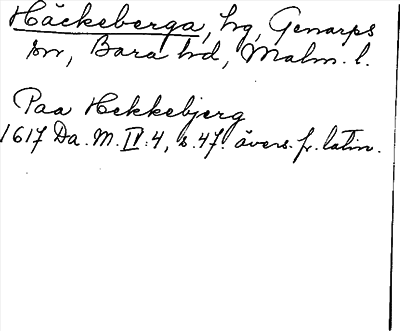 Häckeberga, hg, Genarps
sn, Bara hd, Malm. l.
Paa Hekkebjerg
1617 Da. M. IV. 4, s. 47. övers. fr. latin.